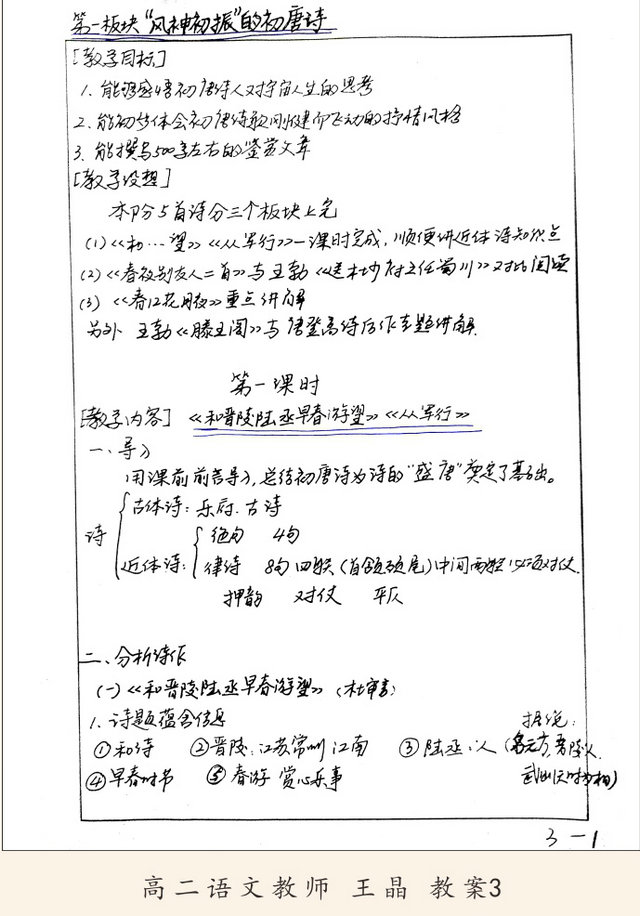 第一板块“风神初振”的初唐诗
[教学目标]
1. 能够感悟初唐诗人对宇宙人生的思考
2. 能初步体会初唐诗歌刚健而飞动的抒情风格
3. 能撰写500字左右的鉴赏文章
[教学设想]
本部分5首诗分三个板块上完
(1)《和…望》《从军行》一课时完成，顺便讲近体诗知识点
(2)《春夜别友人二首》与王勃《送杜少府之任蜀川》对比阅读
(3)《春江花月夜》重点讲解
另外 王勃《滕王阁》与唐登高诗后作专题讲解
第一课时
[教学内容] 《和晋陵陆丞早春游望》《从军行》
一、导入
用课前前言导入，总结初唐诗为诗的“盛唐”奠定了基础。
诗
古体诗：乐府、古诗
绝句 4句
近体诗：律诗 8句 四联（首颔颈尾）中间两联必须对仗.
押韵 对仗 平仄
二、分析诗作
(一)《和晋陵陆丞早春游望》（杜审言）
1. 诗题蕴含信息
据说：
①和诗 ②晋陵：江苏常州 江南 ③陆丞：人 (名元方，
④早春时节 ⑤春游 赏心乐事
3-1
高二语文教师 王晶 教案3